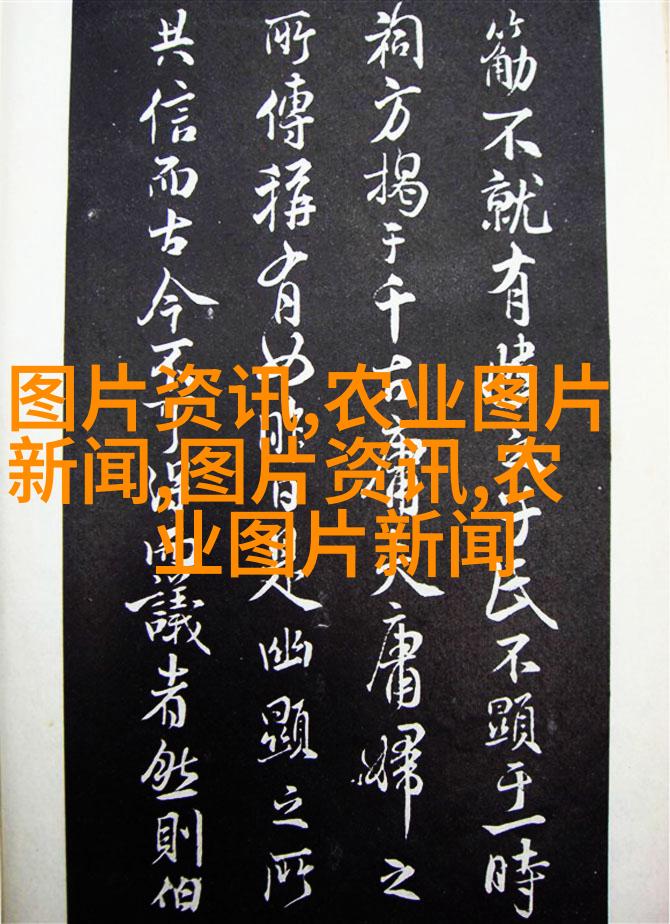 不就有民不顯于一時
祠方揭于千古庸夫庸婦之
所傳稱有是幽顯之所
共信而古今不可得而議者然則伯
图片资讯,农业图片
新闻,图片资讯,农
业图片新闻